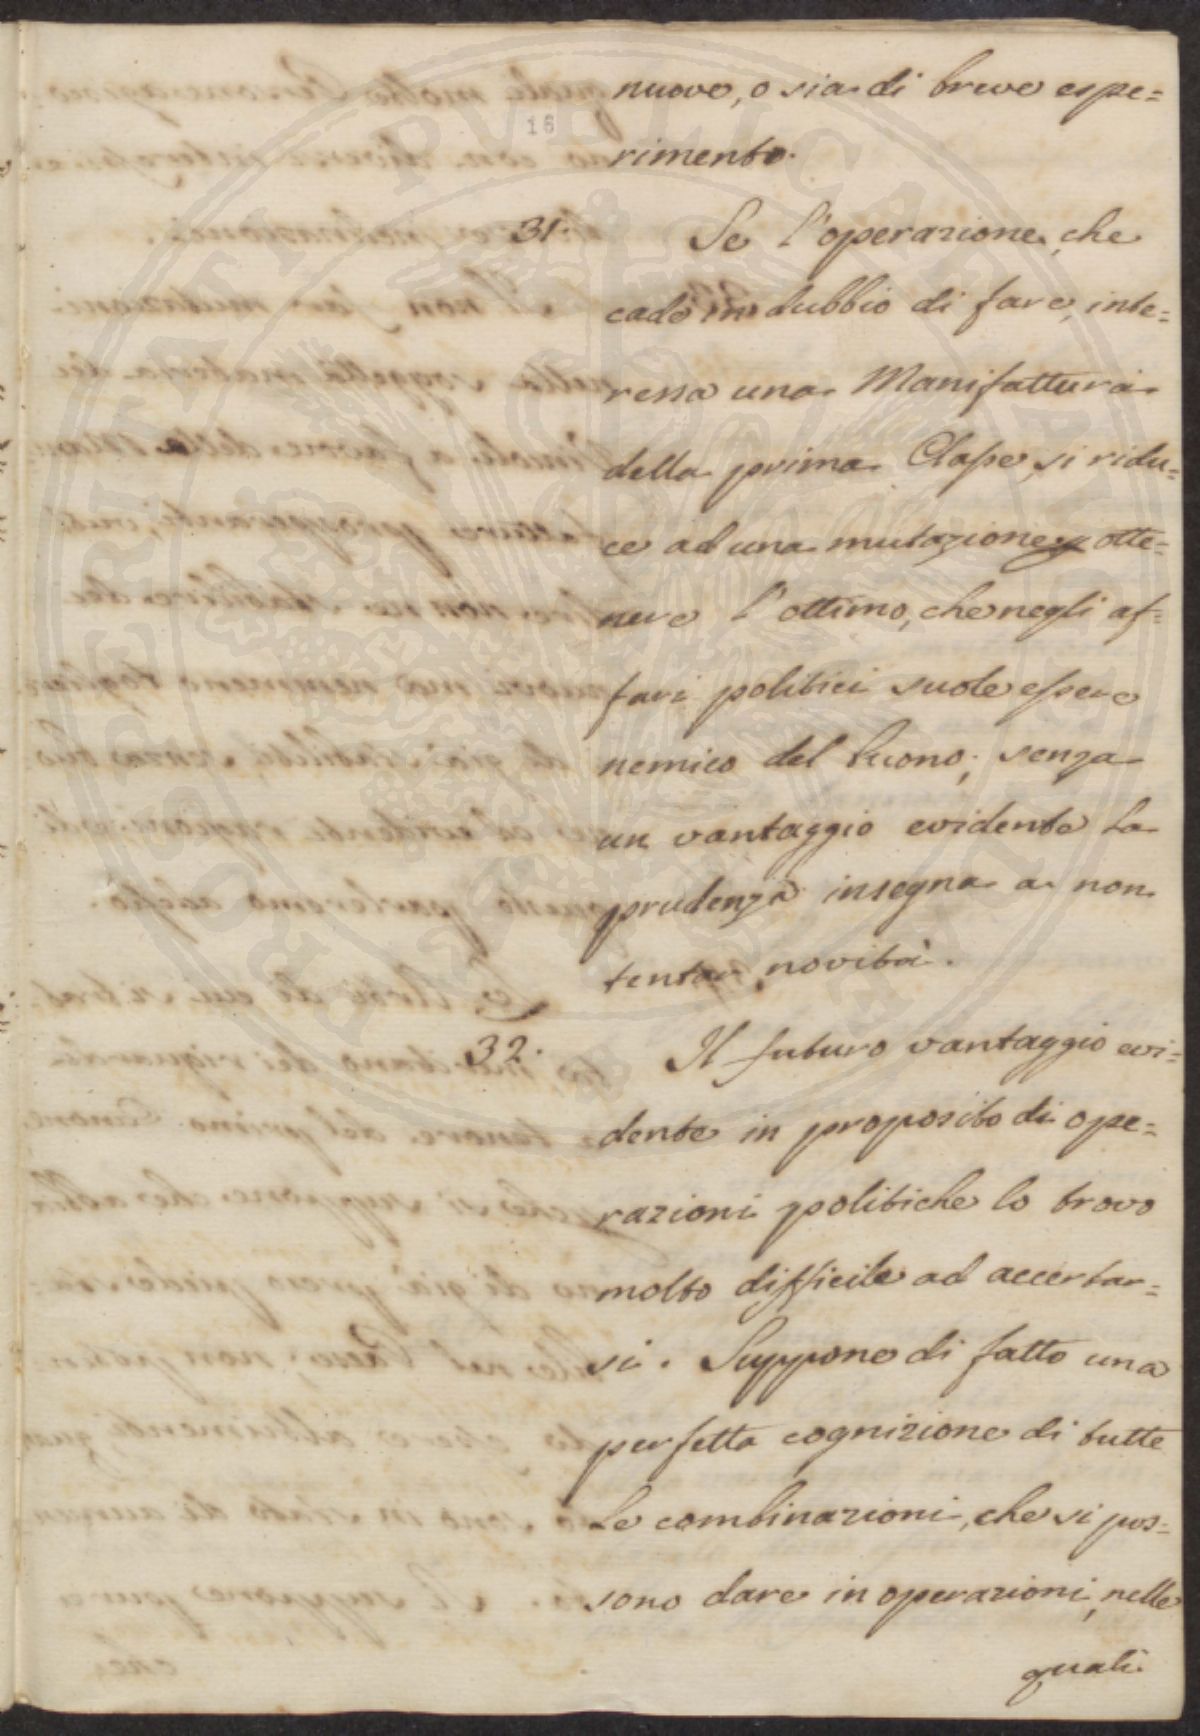 nuove, o sia di breve espe=
16
rimento.
31. Se l'operazione, che
cade in dubbio di fare, inte=
ressa una Manifattura
della prima Classe, si ridu=
ce ad una mutazione p otte=
nere l'ottimo, che negli af=
fari politici suole essere
nemico del buono; senza
un vantaggio evidente la
prudenza insegna a non
tentar novità.
32. Il futuro vantaggio evi=
dente in proposito di ope=
razioni politiche lo trovo
molto difficile ad accertar=
si. Suppone di fatto una
perfetta cognizione di tutte
le combinazioni, che si pos=
sono dare in operazioni, nelle
quali